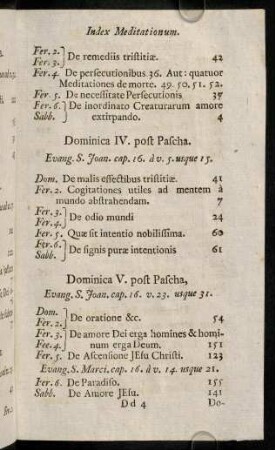 Index Meditationum.
Fer. 2. } De remediis tristitiæ. 42
Fer. 3.
Fer. 4. De persecutionibus 36. Aut: quatuor
Meditationes de morte. 49. 50. 51. 52.
Fer. 5. De necessitate Persecutionis 35
Fer. 6. } De inordinato Creaturarum amore
Sabb. extirpando. 4
Dominica IV. post Pascha.
Evang. S. Joan. cap. 16. à v. 5. usque 15.
Dom. De malis effectibus tristitiæ. 41
Fer. 2. Cogitationes utiles ad mentem à
mundo abstrahendam. 7
Fer. 3. } De odio mundi 24
Fer. 4.
Fer. 5. Quæ sit intentio nobilissima. 60
Fer. 6. } De signis puræ intentionis 61
Sabb.
Dominica V. post Pascha,
Evang. S. Joan. cap. 16. v. 23. usque 31.
Dom. } De oratione &c. 54
Fer. 2.
Fer. 3. } De amore Dei erga homines & homi-
Fer. 4. num erga Deum. 151
Fer. 5. De Ascensione JEsu Christi. 123
Evang. S. Marci. cap. 16. à v. 14. usque 21.
Fer. 6. De Paradiso. 155
Sabb. De Amore JEsu. 141
D d 4 Do-